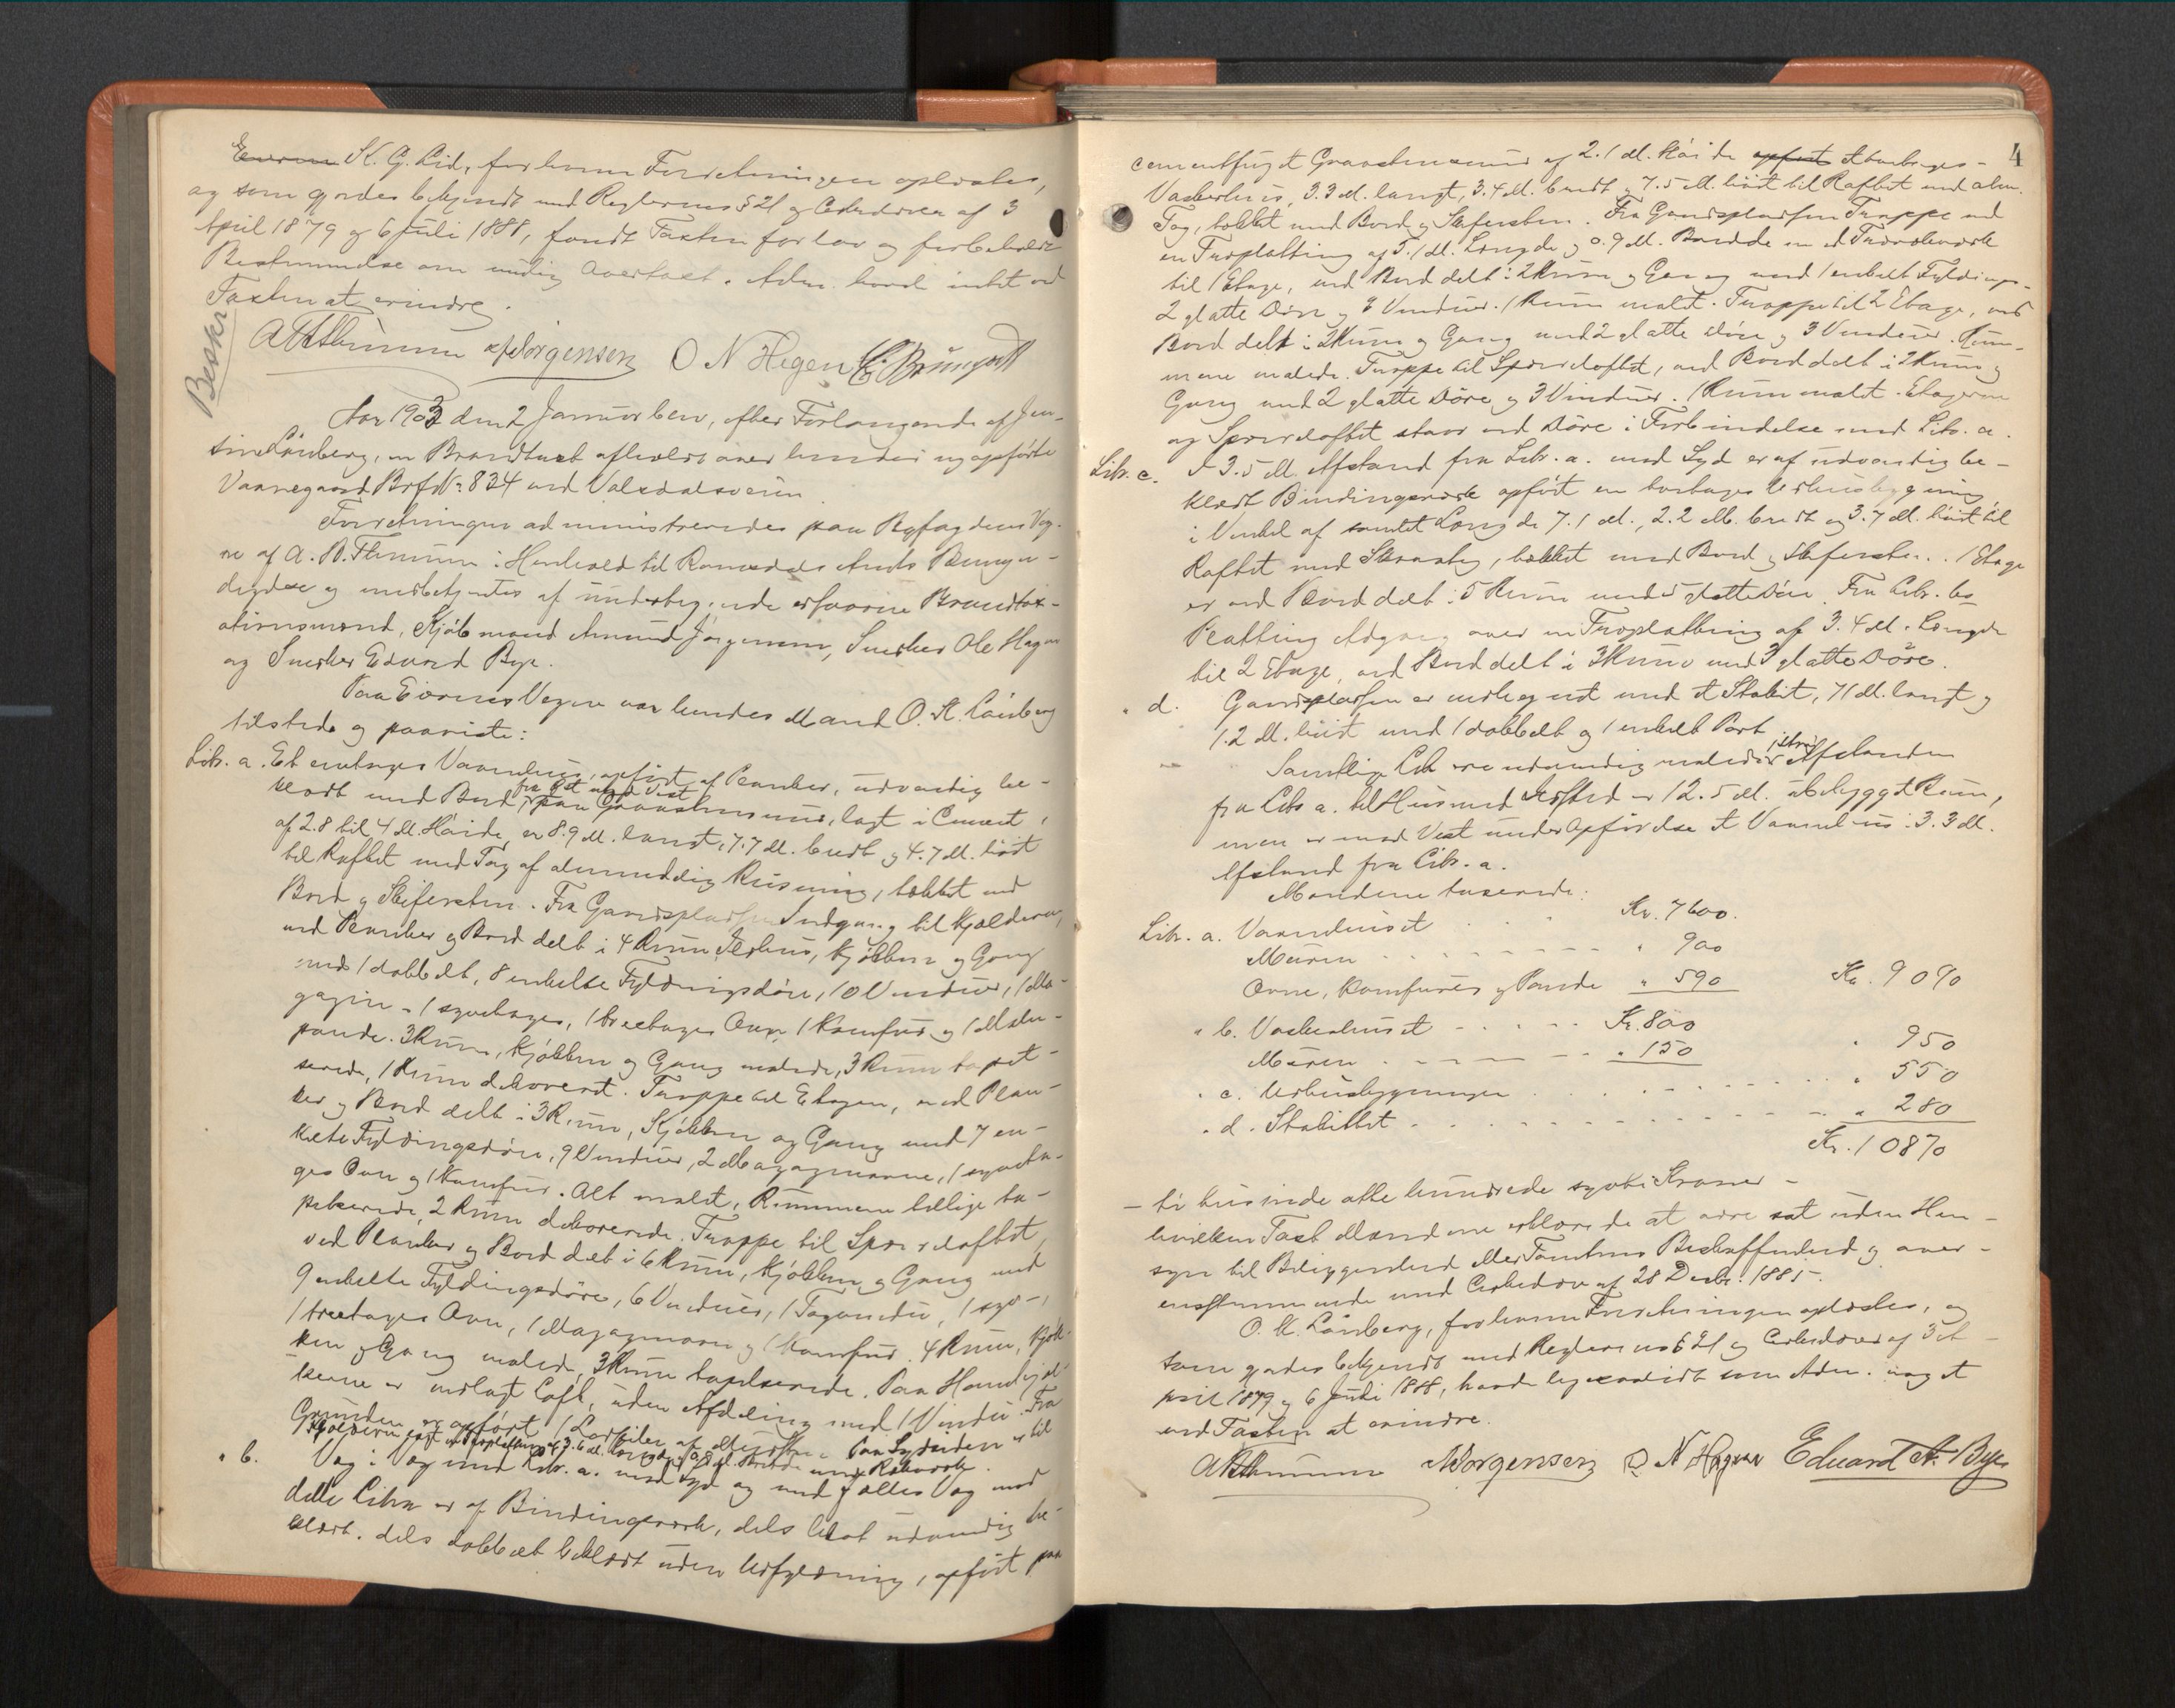 K. G. Lid, for hvem Forretningen oplæstes,
og som gjordes bekjendt med Reglernes § 21 og Cirkulærer af 3
April 1879 og 6 Juli 1888, fandt Taxten for lav og forbeholdt
Bestemmelse om mulig Overtaxt. Adm. havde intet ved
Taxten at erindre.
Beskr
Jørgensen O N Hegen
Aar 1903 den 2 Januar blev, efter Forlangende af Jen-
sine Lönberg, en Brandtaxt afholdt over hendes nyopførte
Vaanegaard Brf. № 834 ved Volsdalsveien.
Forretningen administreredes paa Byfogdens Veg-
ne af A. B. Flemmen i Henhold til Romsdals Amts Bemyn-
digelse og medbetjentes af undertegnede edsvorne Brandtax-
ationsmænd, Kjøbmand Amund Jörgensen, Snedker Ole Hagen
og Snedker Edvard Bye.
Paa Eierens Vegne var hendes Mand O. K. Lönberg
tilstede og paaviste:
Litr. a. Et enetages Vaanehus, opført af Planker, udvendig be-
klædt med Bord, fra Öst mod Vest paa Graastensmur, lagt i Cement,
af 2.8 til 4 M. Höide, er 8.9 M. langt, 7.7 M. bredt og 4.7 M. höit
til Raftet med Tag af almindelig Reisning, tækket med
Bord og Skifersten. Fra Gaardspladsen Indgang til Kjælderen,
ved Planker og Bord delt i 4 Rum, Ildhus, Kjøkken og Gang
med 1 dobbelt, 8 enkelte Fyldningsdöre, 10 Vinduer, 1 Ma-
gazin-, 1 syvetages, 1 treetages Ovn, 1 Komfur og 1 Maler-
pande. 3 Rum, Kjökken og Gang malede, 3 Rum tapet-
serede, 1 Rum dekoreret. Trappe til Etagen, ved Plan-
ker og Bord delt i 3 Rum, Kjökken og Gang med 7 en-
kelte Fyldingsdöre, 9 Vinduer, 2 Magazinovne, 1 syveta-
ges Ovn og 1 Komfur. Alt malt, Rummene tillige ta-
petserede, 2 Rum dekorerede. Trappe til Sperreloftet,
ved Planker og Bord delt i 6 Rum, Kjökken og Gang med
9 enkelte Fyldingsdöre, 6 Vinduer, 1 Tagvindu, 1 syv-,
1 treetages Ovn, 1 Magazinovn og 1 Komfur. 4 Rum, Kjök-
ken og Gang malede, 3 Rum tapetserede. Paa Hanebjæl-
kerne er indlagt Loft, uden Afdeling med 1 Vindu. Fra
Grunden er opført 1 Lodpibe af Mursten. Paa Sydsiden er til
Kjælderen en Troplatting af 3.6 M. Længde og 0.8 M. Bredde med Rækværk.
" b. Væg i Væg med Litr. a. mod Syd og med fælles Væg mod
dette Litra er af Bindingsværk, dels blot udvendig be-
klædt, dels dobbelt beklædt uden Udfyldning, opført paa
4
cementfuget Graastensmur af 2.1 M. Höide opført et toetages
Vaskerhus, 3.3 M. langt, 3.4 M. bredt og 7.5 M. höit til Raftet med alm.
Tag, tækket med Bord og Skifersten. Fra Gaardspladsen Trappe med
en Troplatting af 5.1 M. Længde og 0.9 M. Bredde med Træværk
til 1 Etage, ved Bord delt i 2 Rum og Gang med 1 enkelt Fyldings-
2 glatte Döre og 3 Vinduer. 1 Rum malt. Trappe til 2 Etage, ved
Bord delt i 2 Rum og Gang med 2 glatte Döre og 3 Vinduer. Rum-
mene malede. Trappe til Sperreloftet, ved Bord delt i 2 Rum og
Gang med 2 glatte Döre og 3 Vinduer. 1 Rum malt. Etagerne
og Sperreloftet staar ved Döre i Forbindelse med Litr. a.
Litr. c. I 3.5 M. Afstand fra Litr. a. mod Syd er af udvendig be-
klædt Bindingsværk opført en toetages Udhusbygning
i Vinkel af samlet Længde 7.1 M., 2.2 M. bredt og 3.7 M. höit til
Raftet med Skraatag, tækket med Bord og Skifersten. 1 Etage
er ved Bord delt i 5 Rum med 5 glatte Döre. Fra Litr. bs
Platting Adgang over en Troplatting af 3.4 M. Længde
til 2 Etage, ved Bord delt i 3 Rum med 3 glatte Döre.
" d. Gaardspladsen er indhegnet med et Stakit, 71 M. langt og
1.2 M. höit med 1 dobbelt og 1 enkelt Port
Samtlige Litr. ere udvendig malede. Afstanden
fra Litr. a. til Hus med Ildsted er 12.5 M. ubebygget Rum,
men er mod Vest under Opførelse et Vaanehus i 3.3 M.
Afstand fra Litr. a.
Mændene taxerede:
Litr. a. Vaanehuset Kr. 7600.
Muren " 900
Ovne, Komfurer og Pande " 590 Kr. 9090
" b. Vaskerhuset Kr. 800
Muren " 150 " 950
" c. Udhusbygningen " 550
" d. Stakittet " 280
Kr. 10870
– ti tusinde otte hundrede syvti Kroner –
hvilken Taxt Mændene erklærede at være sat uden Hen-
syn til Beliggenhed eller Tomtens Beskaffenhed og over-
ensstemmende med Cirkulære af 28 Decbr. 1885.
O. K. Lönberg, for hvem Forretningen oplæstes, og
som gjordes bekjendt med Reglernes § 21 og Cirkulærer af 3 A-
pril 1879 og 6 Juli 1888, havde ligesaalidt som Adm. noget
ved Taxten at erindre.
Jörgensen O N Hagen Eduard A. Bye